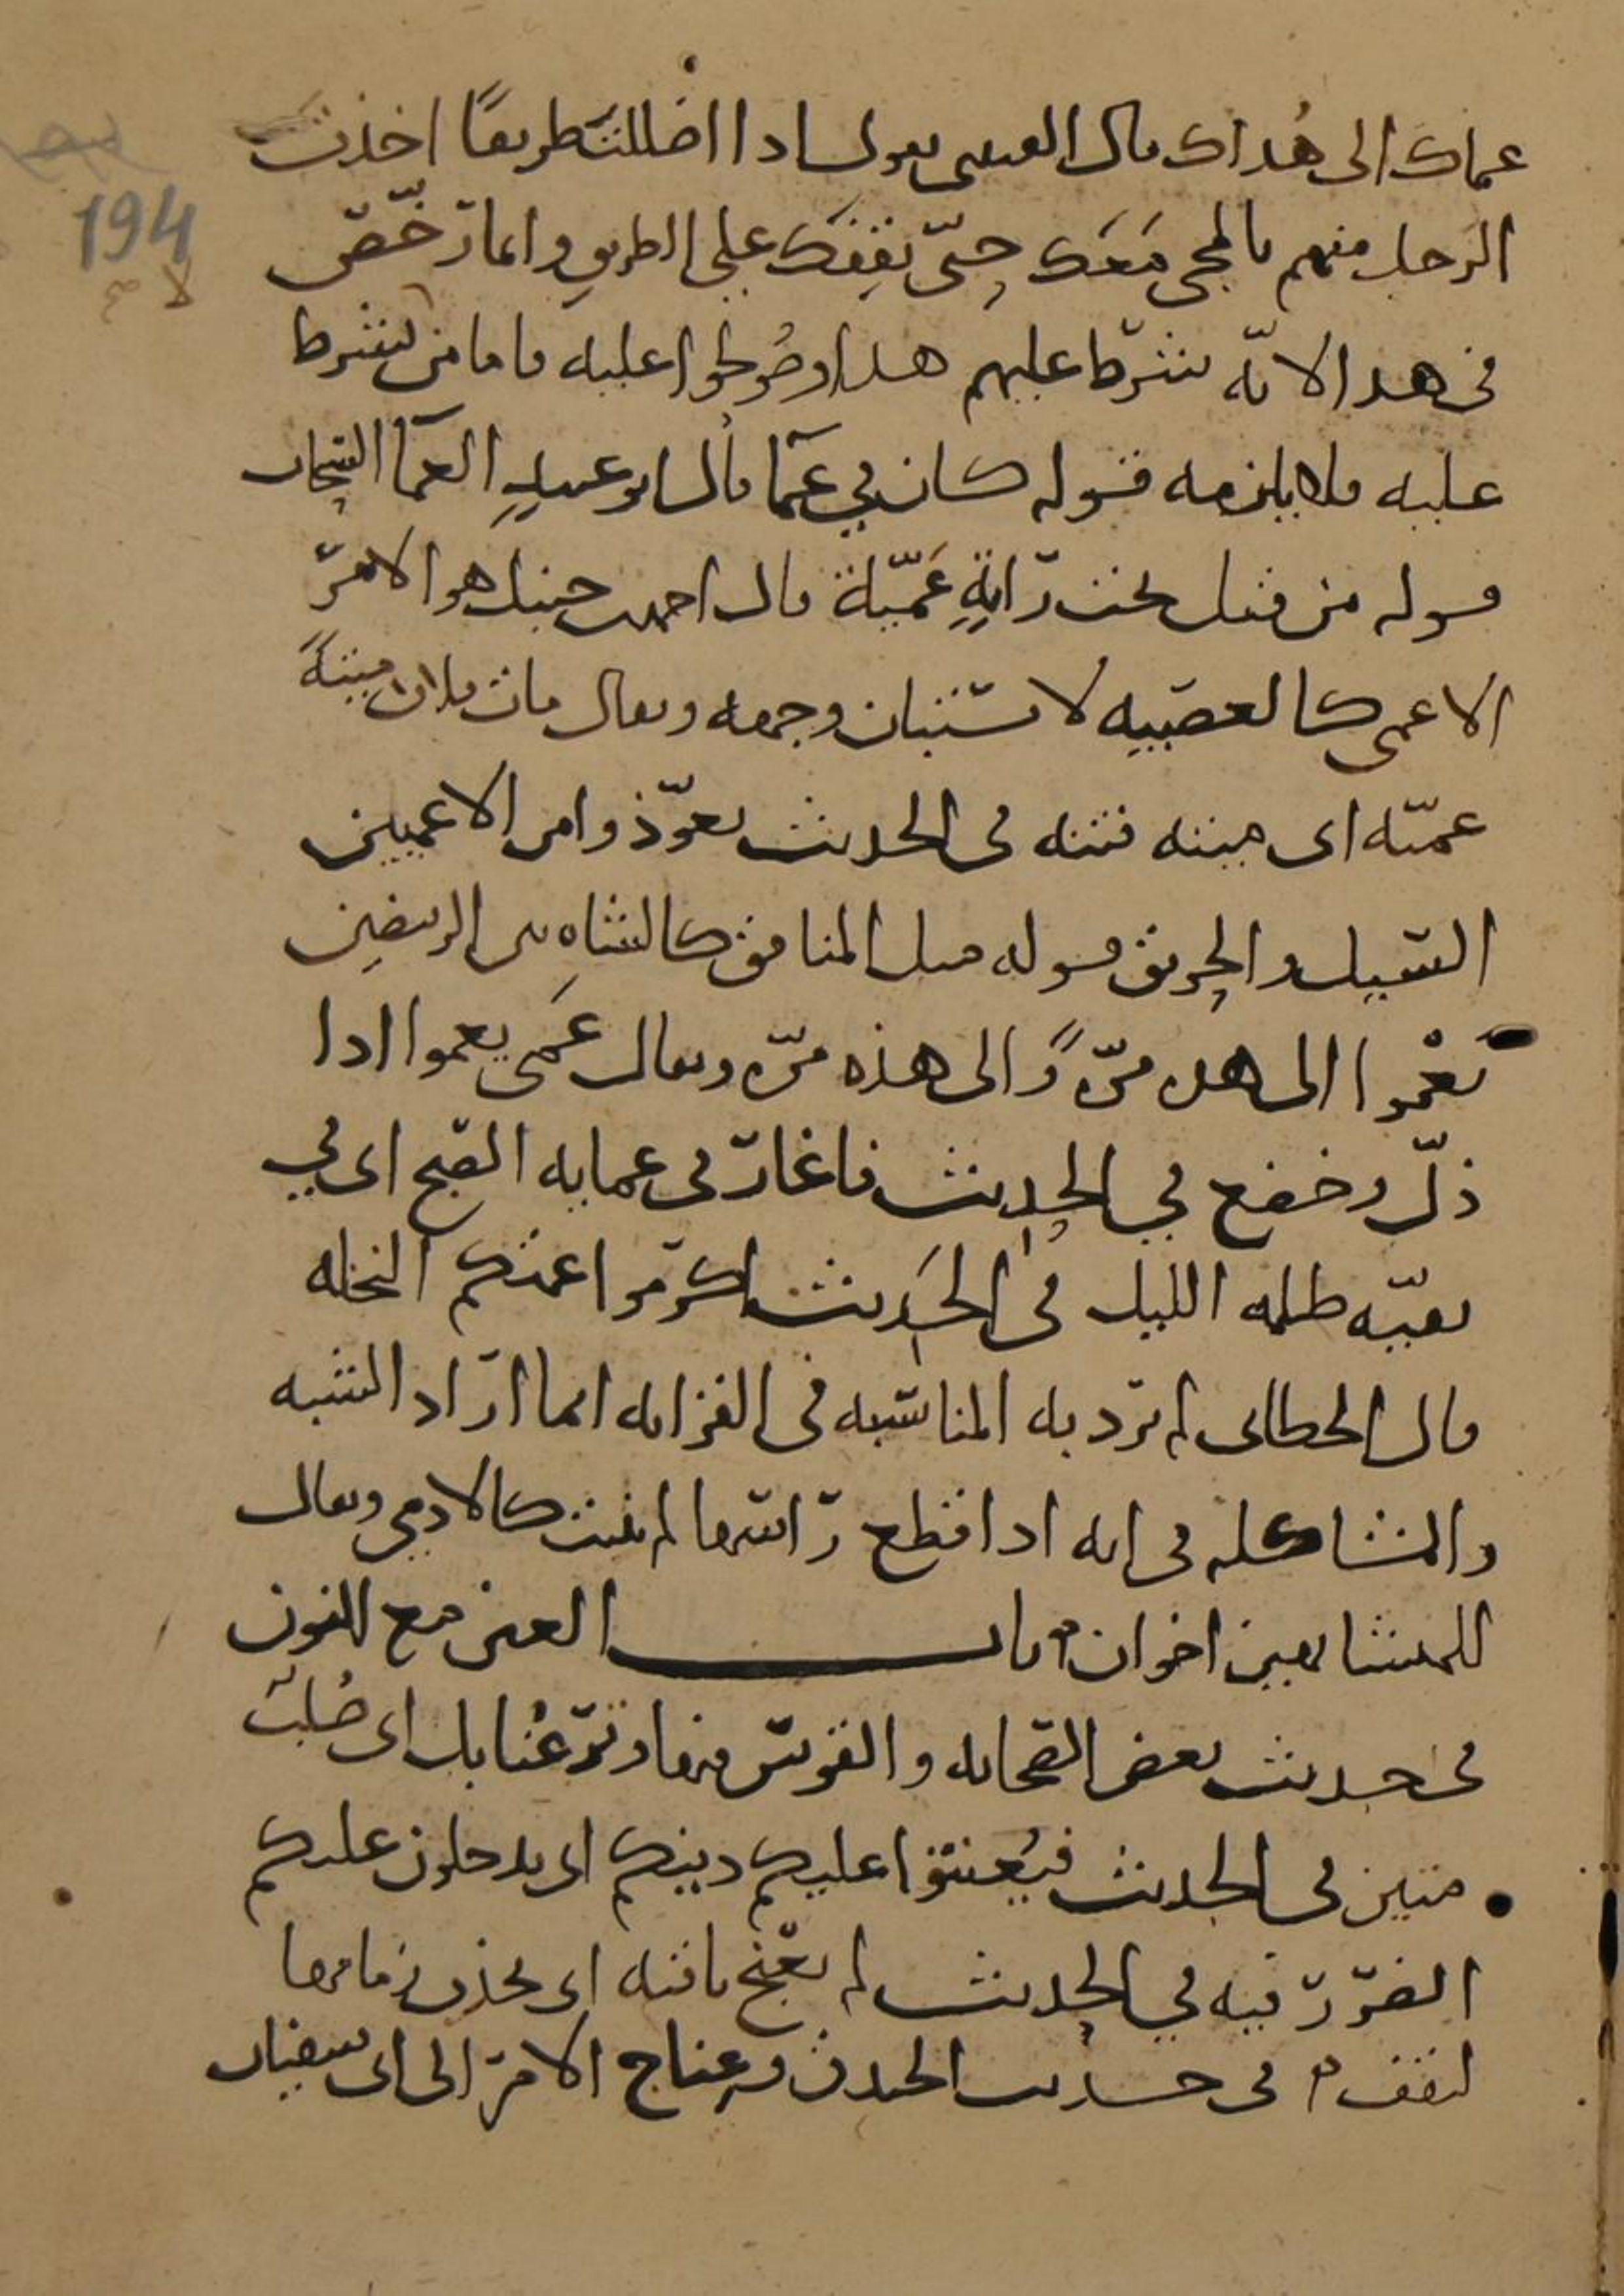 عماك الى هُداك قال القتبى يقول اذا اضللتَ طريقًا اخذتَ
الرَجل منهم بالمجى مَعَك حتّى يقِفَك على الطريق وانما رَخّصَ
فى هذا لانّه شَرَط عليهم هذا وصُولحوا عليه فاما من لم يشرط
عليه فلا يلزمه قوله كان في عمَآ قال ابو عبيدٍ العمَآ السَّحاب
قوله من قتل تحت رَايةٍ عَمّيّة قال احمد بن حنبل هو الامرُ
الاعمى كالعصَبيه لا يستبان وجهه ويقال مات فلان ميتةً
عميّه اى ميته فتنه فى الحديث تعوّذوا من الاعميين
السَّيل والحريق قوله مثل المنافق كالشاةِ بين الربيضين
تَعْموا الى هذه مرّةً والى هذه مرّه ويقال عَمَى يعموا اذا
ذلّ وخضع في الحديث فاغارَ فى عمايه الصّبح اى في
بقيّه ظلمه الليل فى الحَديث اكرموا عمتكم النخله
قال الخطابى لم يرَد به المناسَبه فى القرابه انما ارَاد الشبه
والمشاكله فى انه اذا قطع رَاسَها لم تنبت كالادمي ويقال
للمتشابهين اخوان ۞ باب العين مع النون
فى حديث بعض الصّحابه والقوسَ فيها وترٌ عُنابل اى صُلبٌ
متين فى الحديث فيُعنتوا عليكم دينكم اى يدخلون عليكم
الضرَرَ فيه في الحديث لم يعنج ناقته اى يجذب زمامها
لتقف ۞ فى حديث الخندق وعِناج الامر الى ابى سفيان
194